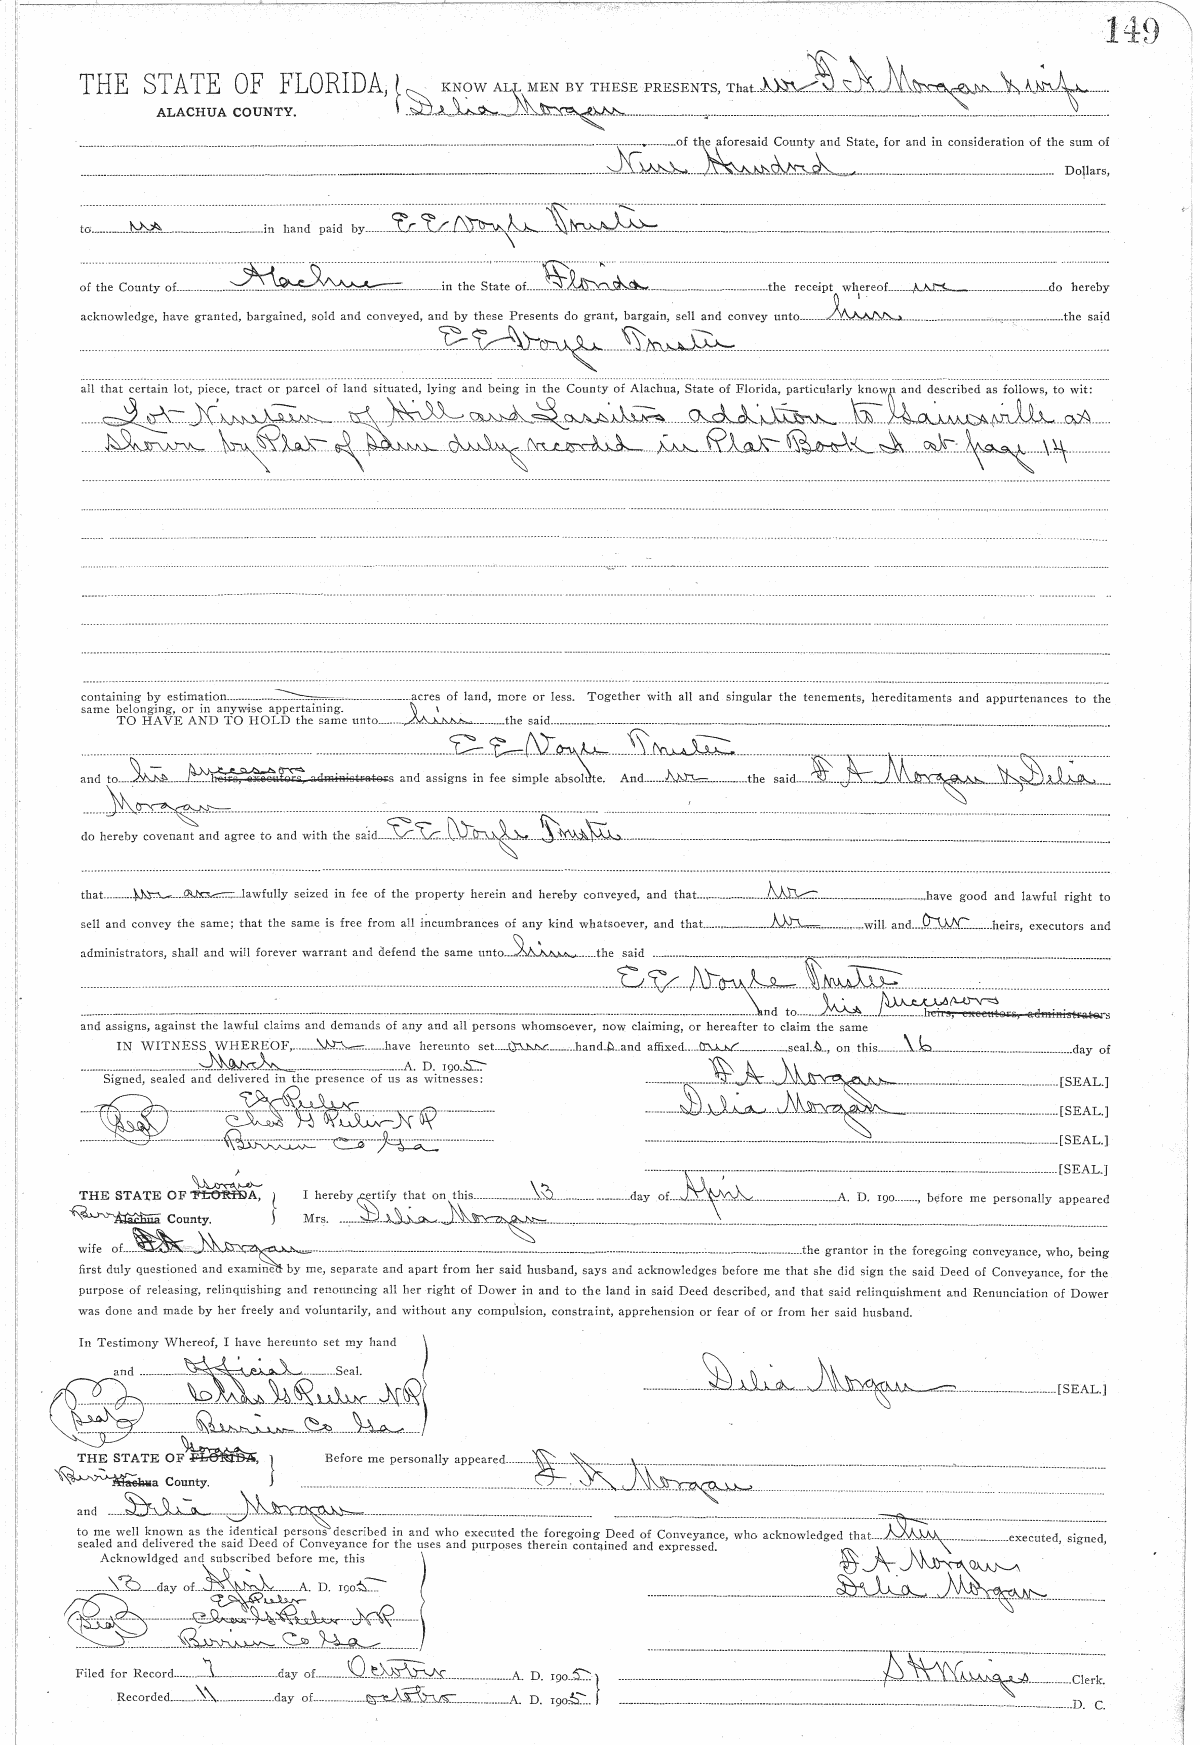 149
THE STATE OF FLORIDA, KNOW ALL MEN BY THESE PRESENTS, That we F A Morgan & wife
ALACHUA COUNTY. Delia Morgan
of the aforesaid County and State, for and in consideration of the sum of
Nine Hundred Dollars,
to us in hand paid by E E Voyle Trustee
of the County of Alachua in the State of Florida the receipt whereof we do hereby
acknowledge, have granted, bargained, sold and conveyed, and by these Presents do grant, bargain, sell and convey unto him the said
E E Voyle Trustee
all that certain lot, piece, tract or parcel of land situated, lying and being in the County of Alachua, State of Florida, particularly known and described as follows, to wit:
Lot Nineteen of Hill and Lassiters addition to Gainesville as
shown by Plat of same duly recorded in Plat Book A at page 14
containing by estimation acres of land, more or less. Together with all and singular the tenements, hereditaments and appurtenances to the
same belonging, or in anywise appertaining.
TO HAVE AND TO HOLD the same unto him the said
E E Voyle Trustee
and to his successors heirs, executors, administrators and assigns in fee simple absolute. And we the said F A Morgan & Delia
Morgan
do hereby covenant and agree to and with the said E E Voyle Trustee
that we are lawfully seized in fee of the property herein and hereby conveyed, and that we have good and lawful right to
sell and convey the same; that the same is free from all incumbrances of any kind whatsoever, and that we will and our heirs, executors and
administrators, shall and will forever warrant and defend the same unto him the said
E E Voyle Trustee
and to his successors heirs, executors, administrators
and assigns, against the lawful claims and demands of any and all persons whomsoever, now claiming, or hereafter to claim the same
IN WITNESS WHEREOF, we have hereunto set our hands and affixed our seals, on this 16 day of
March A. D. 1905 F A Morgan [SEAL.]
Signed, sealed and delivered in the presence of us as witnesses:
E J Peeler Delia Morgan [SEAL.]
Seal Chas G Peeler N P
Berrien Co Ga [SEAL.]
[SEAL.]
Georgia
THE STATE OF FLORIDA, I hereby certify that on this 13 day of April A. D. 190, before me personally appeared
Berrien Alachua County. Mrs. Delia Morgan
wife of F A Morgan the grantor in the foregoing conveyance, who, being
first duly questioned and examined by me, separate and apart from her said husband, says and acknowledges before me that she did sign the said Deed of Conveyance, for the
purpose of releasing, relinquishing and renouncing all her right of Dower in and to the land in said Deed described, and that said relinquishment and Renunciation of Dower
was done and made by her freely and voluntarily, and without any compulsion, constraint, apprehension or fear of or from her said husband.
In Testimony Whereof, I have hereunto set my hand
and official Seal.
Chas G Peeler N P Delia Morgan [SEAL.]
Seal Berrien Co Ga
Georgia
THE STATE OF FLORIDA, Before me personally appeared F A Morgan
Berrien Alachua County.
and Delia Morgan
to me well known as the identical persons described in and who executed the foregoing Deed of Conveyance, who acknowledged that they executed, signed,
sealed and delivered the said Deed of Conveyance for the uses and purposes therein contained and expressed.
Acknowldged and subscribed before me, this F A Morgan
13 day of April A. D. 1905 Delia Morgan
E J Peeler
Seal Chas G Peeler N P
Berrien Co Ga
Filed for Record 7 day of October A. D. 1905 S H Wienges Clerk.
Recorded 11 day of october A. D. 1905 D. C.